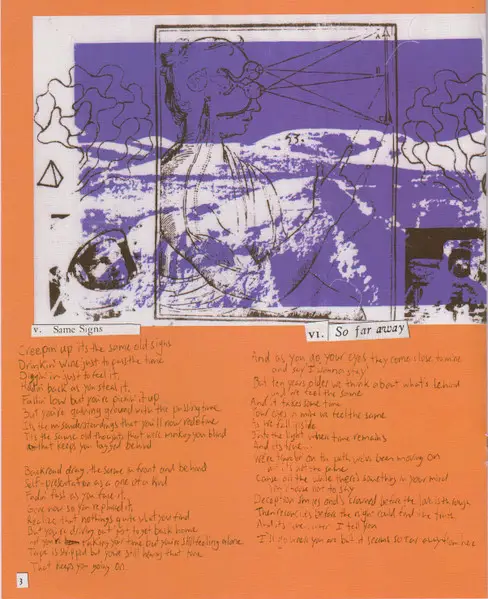 A
B
53.
v. Same Signs
Creepin up its the same old signs
Drinkin' wine just to pass the time
Diggin in just to feel it,
back as you steal it.
Fadin' low but you're pickin' it up
But you're gaining ground with the passing time
It's the misunderstandings that you'll now redefine
It's the same old thoughts that were making you blind
that keeps you lagged behind
Backround drag, the same in front and behind
Self-presentation as a one of a kind
Fadin' fast as you take it,
now so you replace it.
Realize that nothings quite what you find
But you're driving out just to get back home
yet you're taking your time but you're still feeling alone.
Tape is stripped but your still hearing that tone
That keeps you going on.
vi. So far away
And as you do your eyes they come close to mine
and say I wanna stay
But ten years older we think about what's behind
and we feel the same
And it takes some time
Your eyes to mine we feel the same
to fall inside
Into the light when time remains
And its true...
We're then far on the path we've been moving on
all the same
Cause all the while there's something in your mind
not to stay
Deception
the right time
And its I tell you
I'll but it seems so far away from here
3